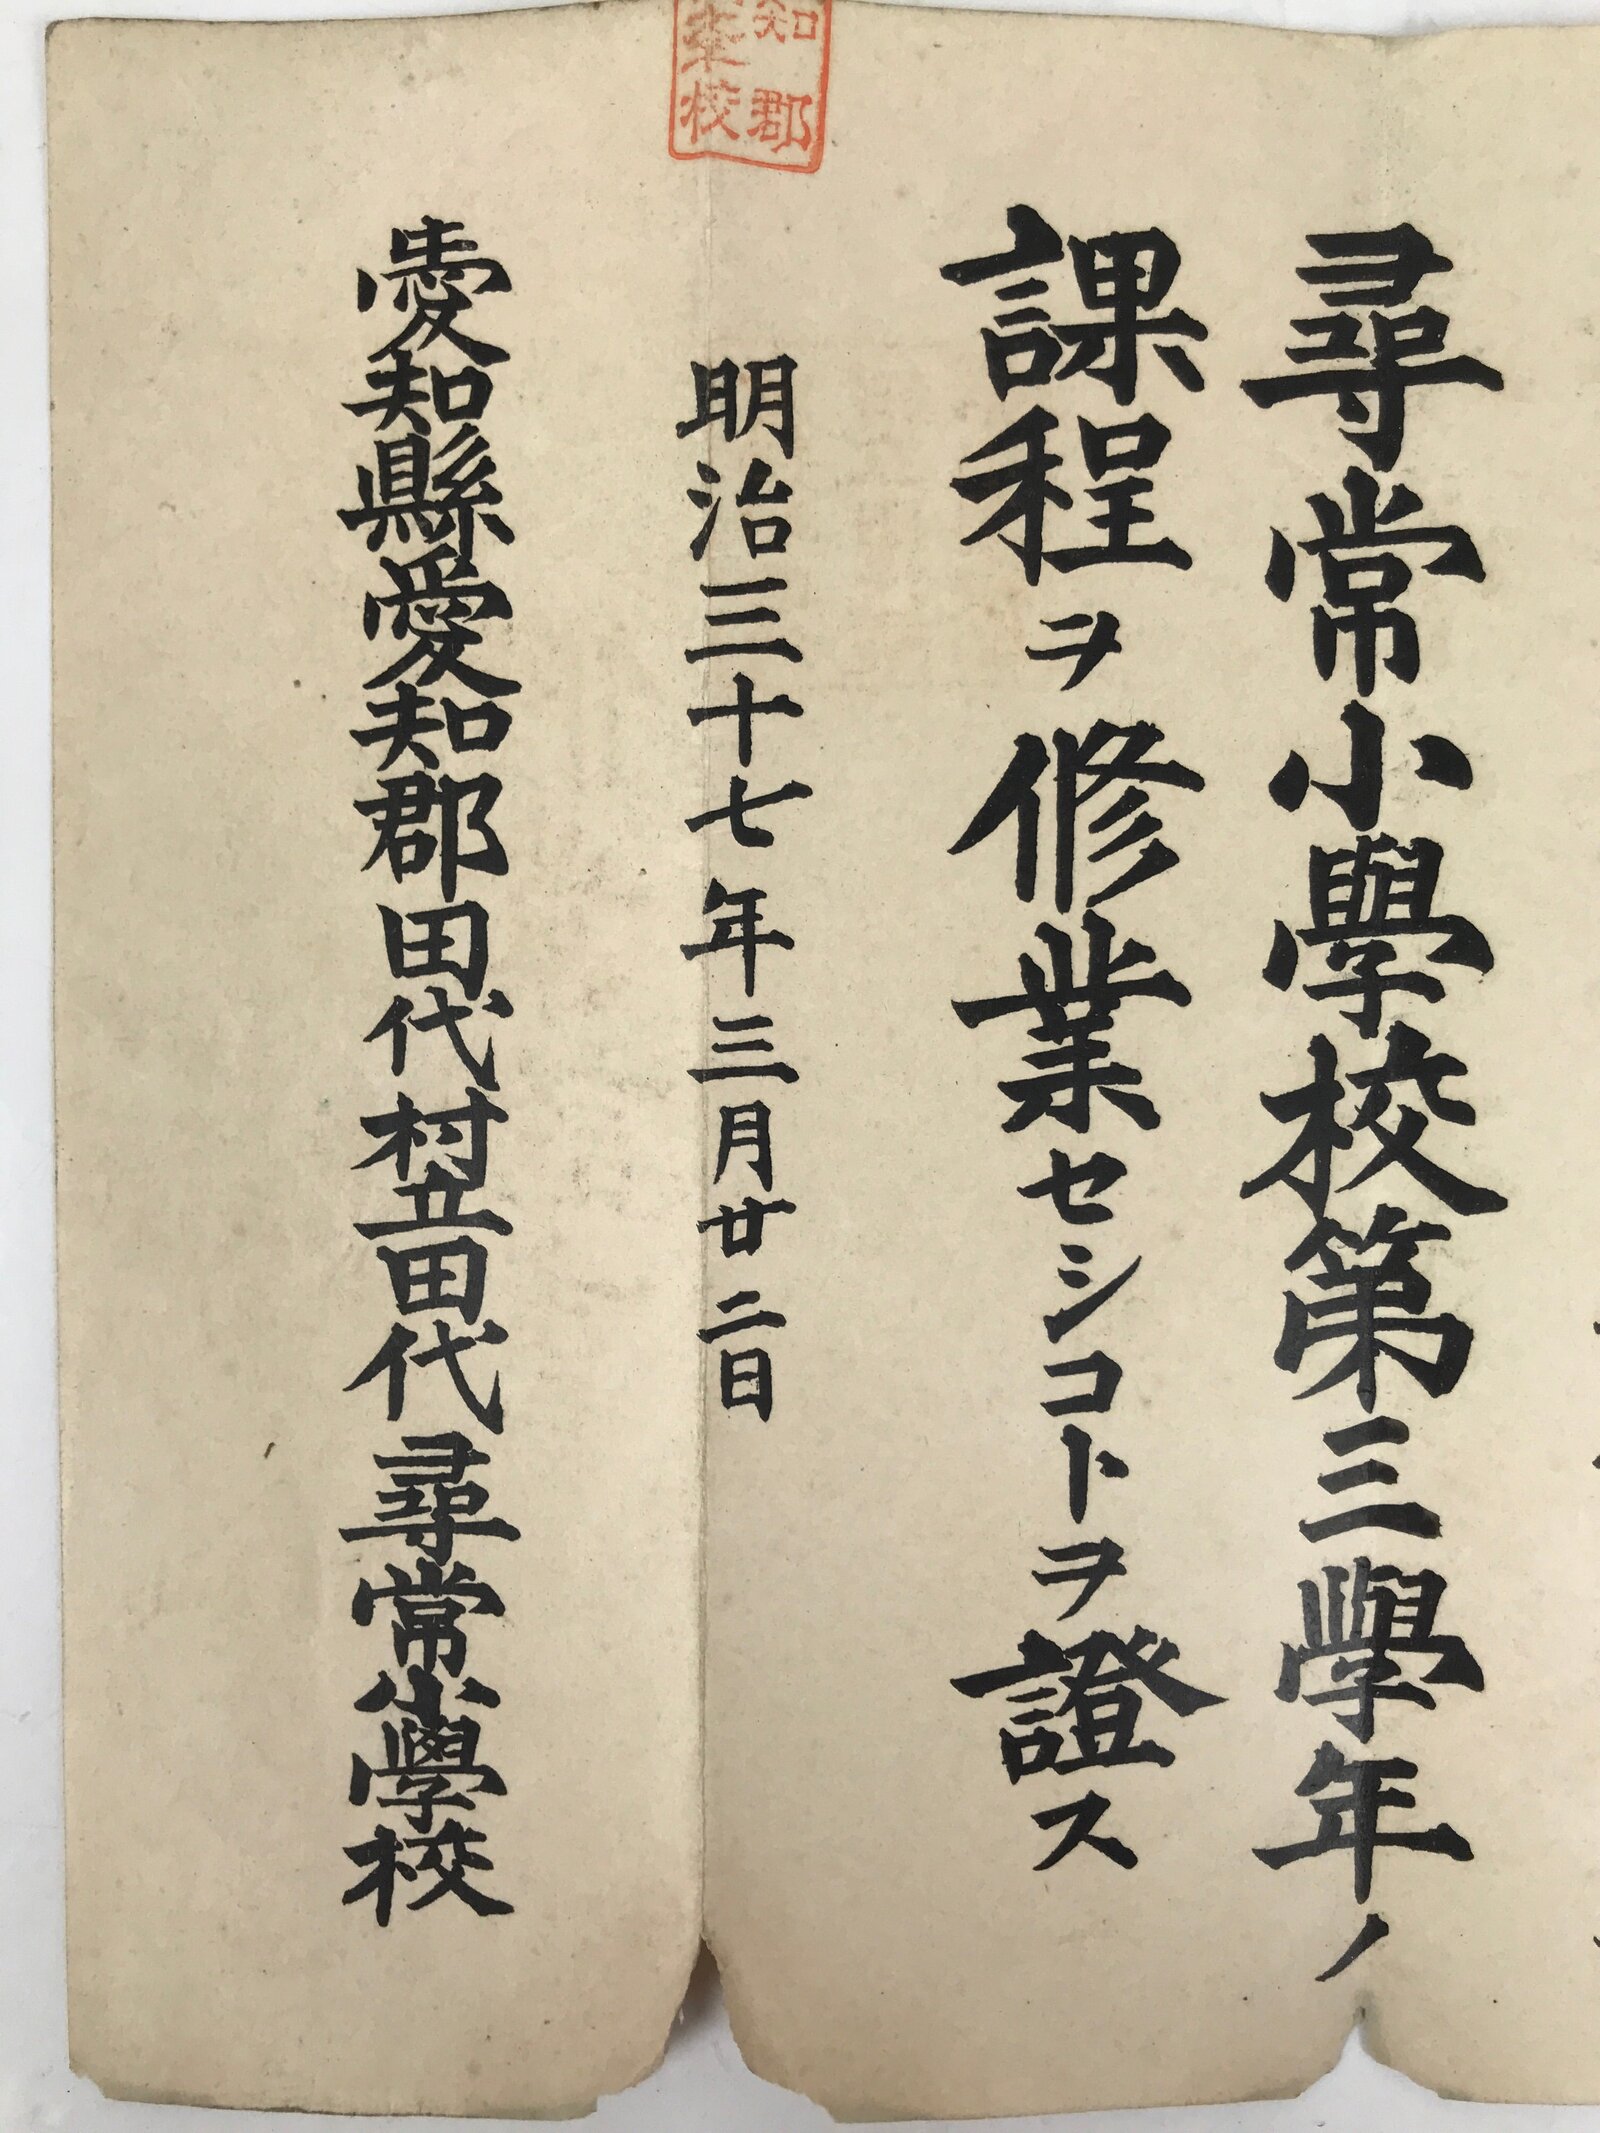 尋常小學校第三學年ノ
課程ヲ修業セシコトヲ證ス
明治三十七年三月廿二日
愛知縣愛知郡田代村立田代尋常小學校
知郡
校